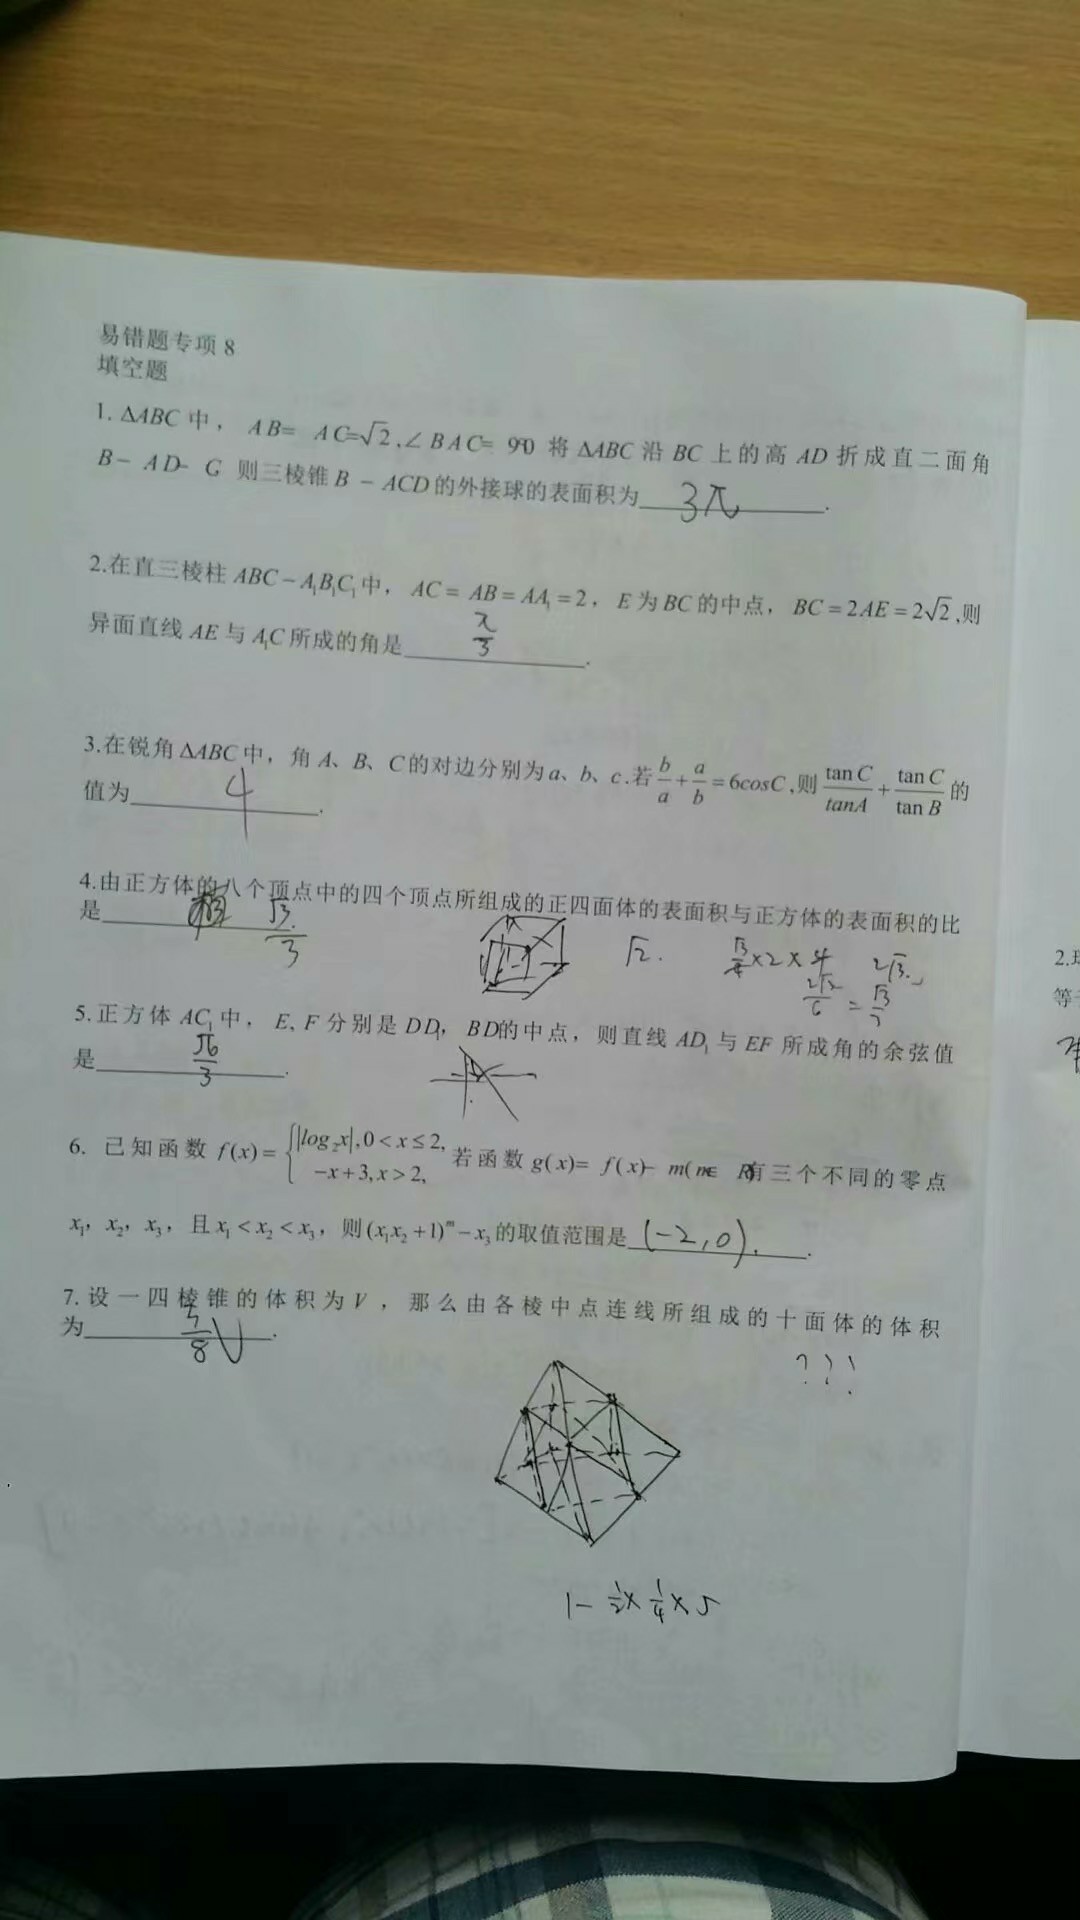 易错题专项 8
填空题
1. ΔABC 中， AB= AC=√2,∠BAC= 90 将 ΔABC 沿 BC 上的高 AD 折成直二面角
B- AD- C 则三棱锥 B - ACD 的外接球的表面积为 3π .
2.在直三棱柱 ABC - A₁B₁C₁ 中， AC = AB = AA₁ = 2， E 为 BC 的中点， BC = 2AE = 2√2 ,则
异面直线 AE 与 A₁C 所成的角是 π/3 .
3.在锐角 ΔABC 中，角 A、B、C 的对边分别为 a、b、c .若 b/a + a/b = 6cosC ,则 tan C/tanA + tan C/tan B 的
值为 4 .
4.由正方体的八个顶点中的四个顶点所组成的正四面体的表面积与正方体的表面积的比
是 √3/3
√2 . √3/4 ×2×4 2√3
2√3/6 = √3/3
5.正方体 AC₁ 中， E, F 分别是 DD₁， BD 的中点，则直线 AD₁ 与 EF 所成角的余弦值
是 √6/3 .
6. 已知函数 f(x) = { |log₂x|,0 < x ≤ 2, -x+3, x > 2, 若函数 g(x)= f(x)- m(m∈ R)有三个不同的零点
x₁， x₂， x₃， 且 x₁ < x₂ < x₃， 则 (x₁x₂ +1)ᵐ - x₃ 的取值范围是 (-2,0) .
7. 设一四棱锥的体积为 V ，那么由各棱中点连线所组成的十面体的体积
为 5/8 V .
? ? !
1- ½ × ¼ × 5
2.球
等于